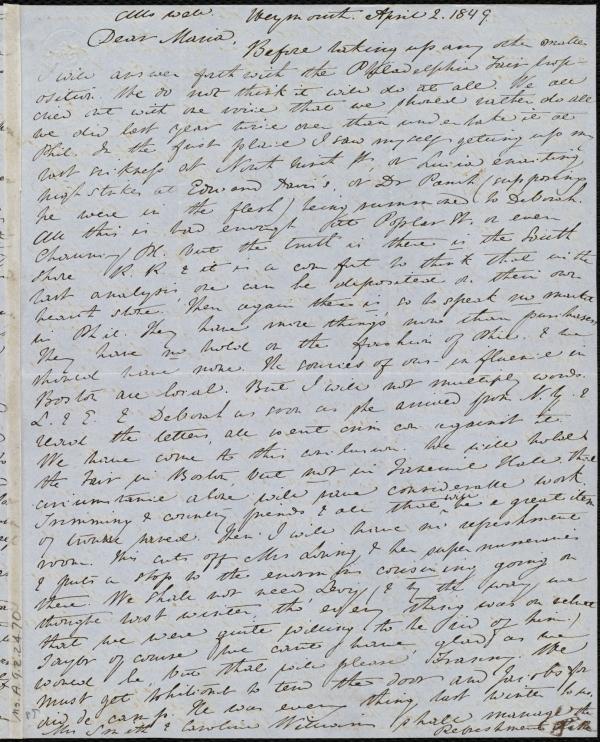 All's well. Weymouth. April 2. 1849
Dear Maria,
Before taking up any other matter
I will answer forthwith the Philadelphia Fair prop-
osition. We do not think it will do at all. We all
cried out with one voice that we should rather do all
we did last year twice over than undertake it at
Phil. In the first place I saw myself getting up in
last sickness at North Ninth St, or Lucia enacting
high strikes at Edward Davis's, or Dr Parish (supposing
he were in the flesh) being summoned to Deborah.
All this is bad enough at Poplar St. or even
Chauncy Pl. but the truth is there is the South
Shore R. R. & it is a comfort to think that in the
last analysis, one can be deposited on their own
hearth stone. Then again there is, so to speak no market
in Phil. They have more things now than purchasers
They have no hold on the fashion of Phil. & we
should have none. The sources of our influence in
Boston are local. But I will not multiply words.
L. & E. & Deborah as soon as she arrived from N. Y. &
read the letters, all went against it.
We have come to this conclusion. We will hold
the Fair in Boston, but not in Faneuil Hall. This
circumstance alone will save considerable work.
Trimming & country friends & all that will be a great item
of trouble saved. Then I will have no refreshment
room. This cuts off Mrs Loring & her supernumeraries
& puts a stop to the enormous cousining going on
there. We shall not need Levy, (& by the way, we
thought last winter tho' every thing was on velvet
that we were quite willing to be rid of him.)
Taylor of course we cant have, glad as we
would be, but that will please Brason. We
must get Whitcomb to tend the door and Jacobs for
aid de camp. He was every thing last winter to us.
Mrs Smith & Caroline Williams shall manage the
Refreshment Table
Ms. A.9.2.24.70